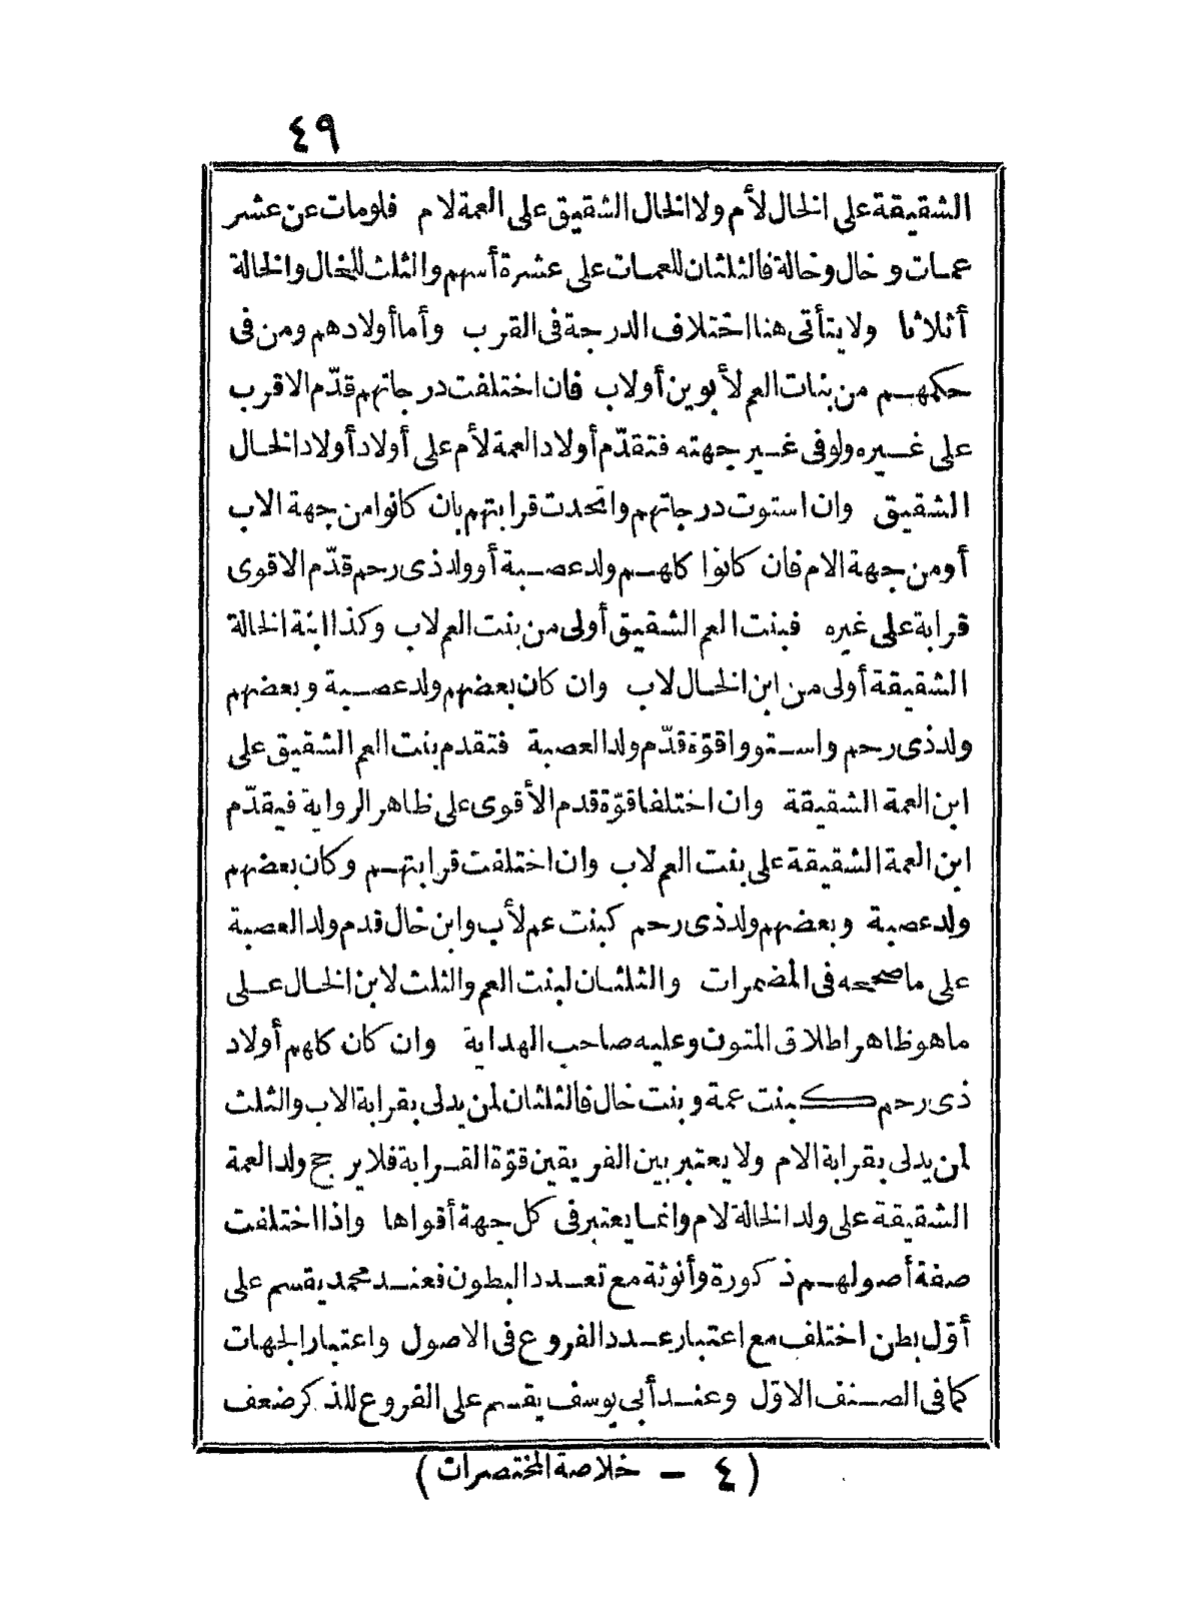 ٤٩
الشقيقة على الخال لأم ولا الخال الشقيق على العمة لام فلومات عن عشر
عمات و خال وخالة فالثلثان للعمات على عشرة أسهم والثلث للخال والخالة
أثلاثا ولا يتأتى هنا اختلاف الدرجة فى القرب وأما أولادهم ومن فى
حكمهم من بنات العم لأبوين أولاب فان اختلفت درجاتهم قدّم الاقرب
على غيره ولو فى غير جهته فتقدّم أولاد العمة لأم على أولاد أولاد الخال
الشقيق وان استوت درجاتهم واتحدت قرابتهم بان كانوا من جهة الاب
أو من جهة الام فان كانوا كلهم ولد عصبة أو ولد ذى رحم قدّم الاقوى
قرابة على غيره فبنت العم الشقيق أولى من بنت العم لاب وكذا ابنة الخالة
الشقيقة أولى من ابن الخال لاب وان كان بعضهم ولد عصبة وبعضهم
ولد ذى رحم واستووا قوّة قدّم ولد العصبة فتقدم بنت العم الشقيق على
ابن العمة الشقيقة وان اختلفا قوّة قدم الأقوى على ظاهر الرواية فيقدّم
ابن العمة الشقيقة على بنت العم لاب وان اختلفت قرابتهم وكان بعضهم
ولد عصبة وبعضهم ولد ذى رحم كبنت عم لأب وابن خال قدم ولد العصبة
على ما صححه فى المضمرات والثلثان لبنت العم والثلث لابن الخال على
ما هو ظاهر اطلاق المتون وعليه صاحب الهداية وان كان كلهم أولاد
ذى رحم كبنت عمة وبنت خال فالثلثان لمن يدلى بقرابة الاب والثلث
لمن يدلى بقرابة الام ولا يعتبر بين الفريقين قوّة القرابة فلا يرجح ولد العمة
الشقيقة على ولد الخالة لام وانما يعتبر فى كل جهة أقواها واذا اختلفت
صفة أصولهم ذكورة وأنوثة مع تعدد البطون فعند محمد يقسم على
أوّل بطن اختلف مع اعتبار عدد الفروع فى الاصول واعتبار الجهات
كما فى الصنف الاوّل وعند أبى يوسف يقسم على الفروع للذكر ضعف
(٤ - خلاصة المختصرات)